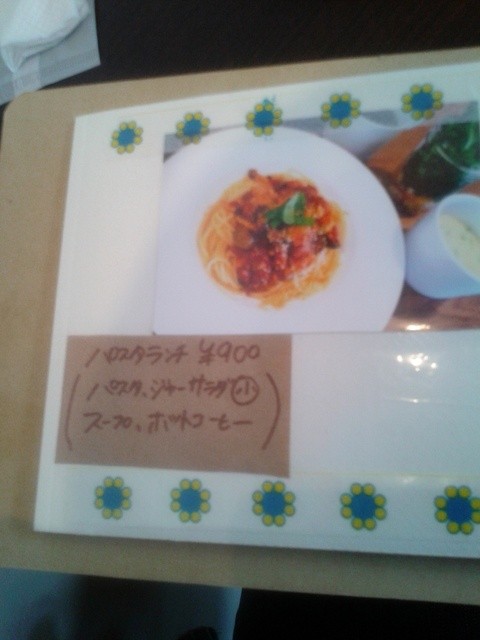 パスタランチ ¥900
(パスタ、ジャーサラダ小
スープ、ホットコーヒー)